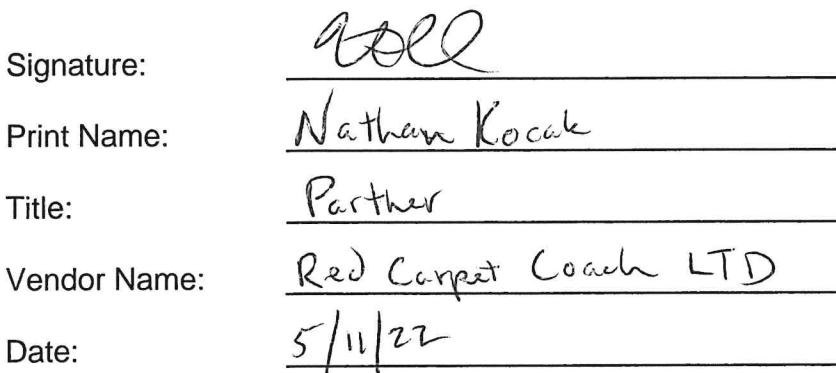 Signature:
Print Name: Nathan Kocak
Title: Partner
Vendor Name: Red Carpet Coach LTD
Date: 5/11/22